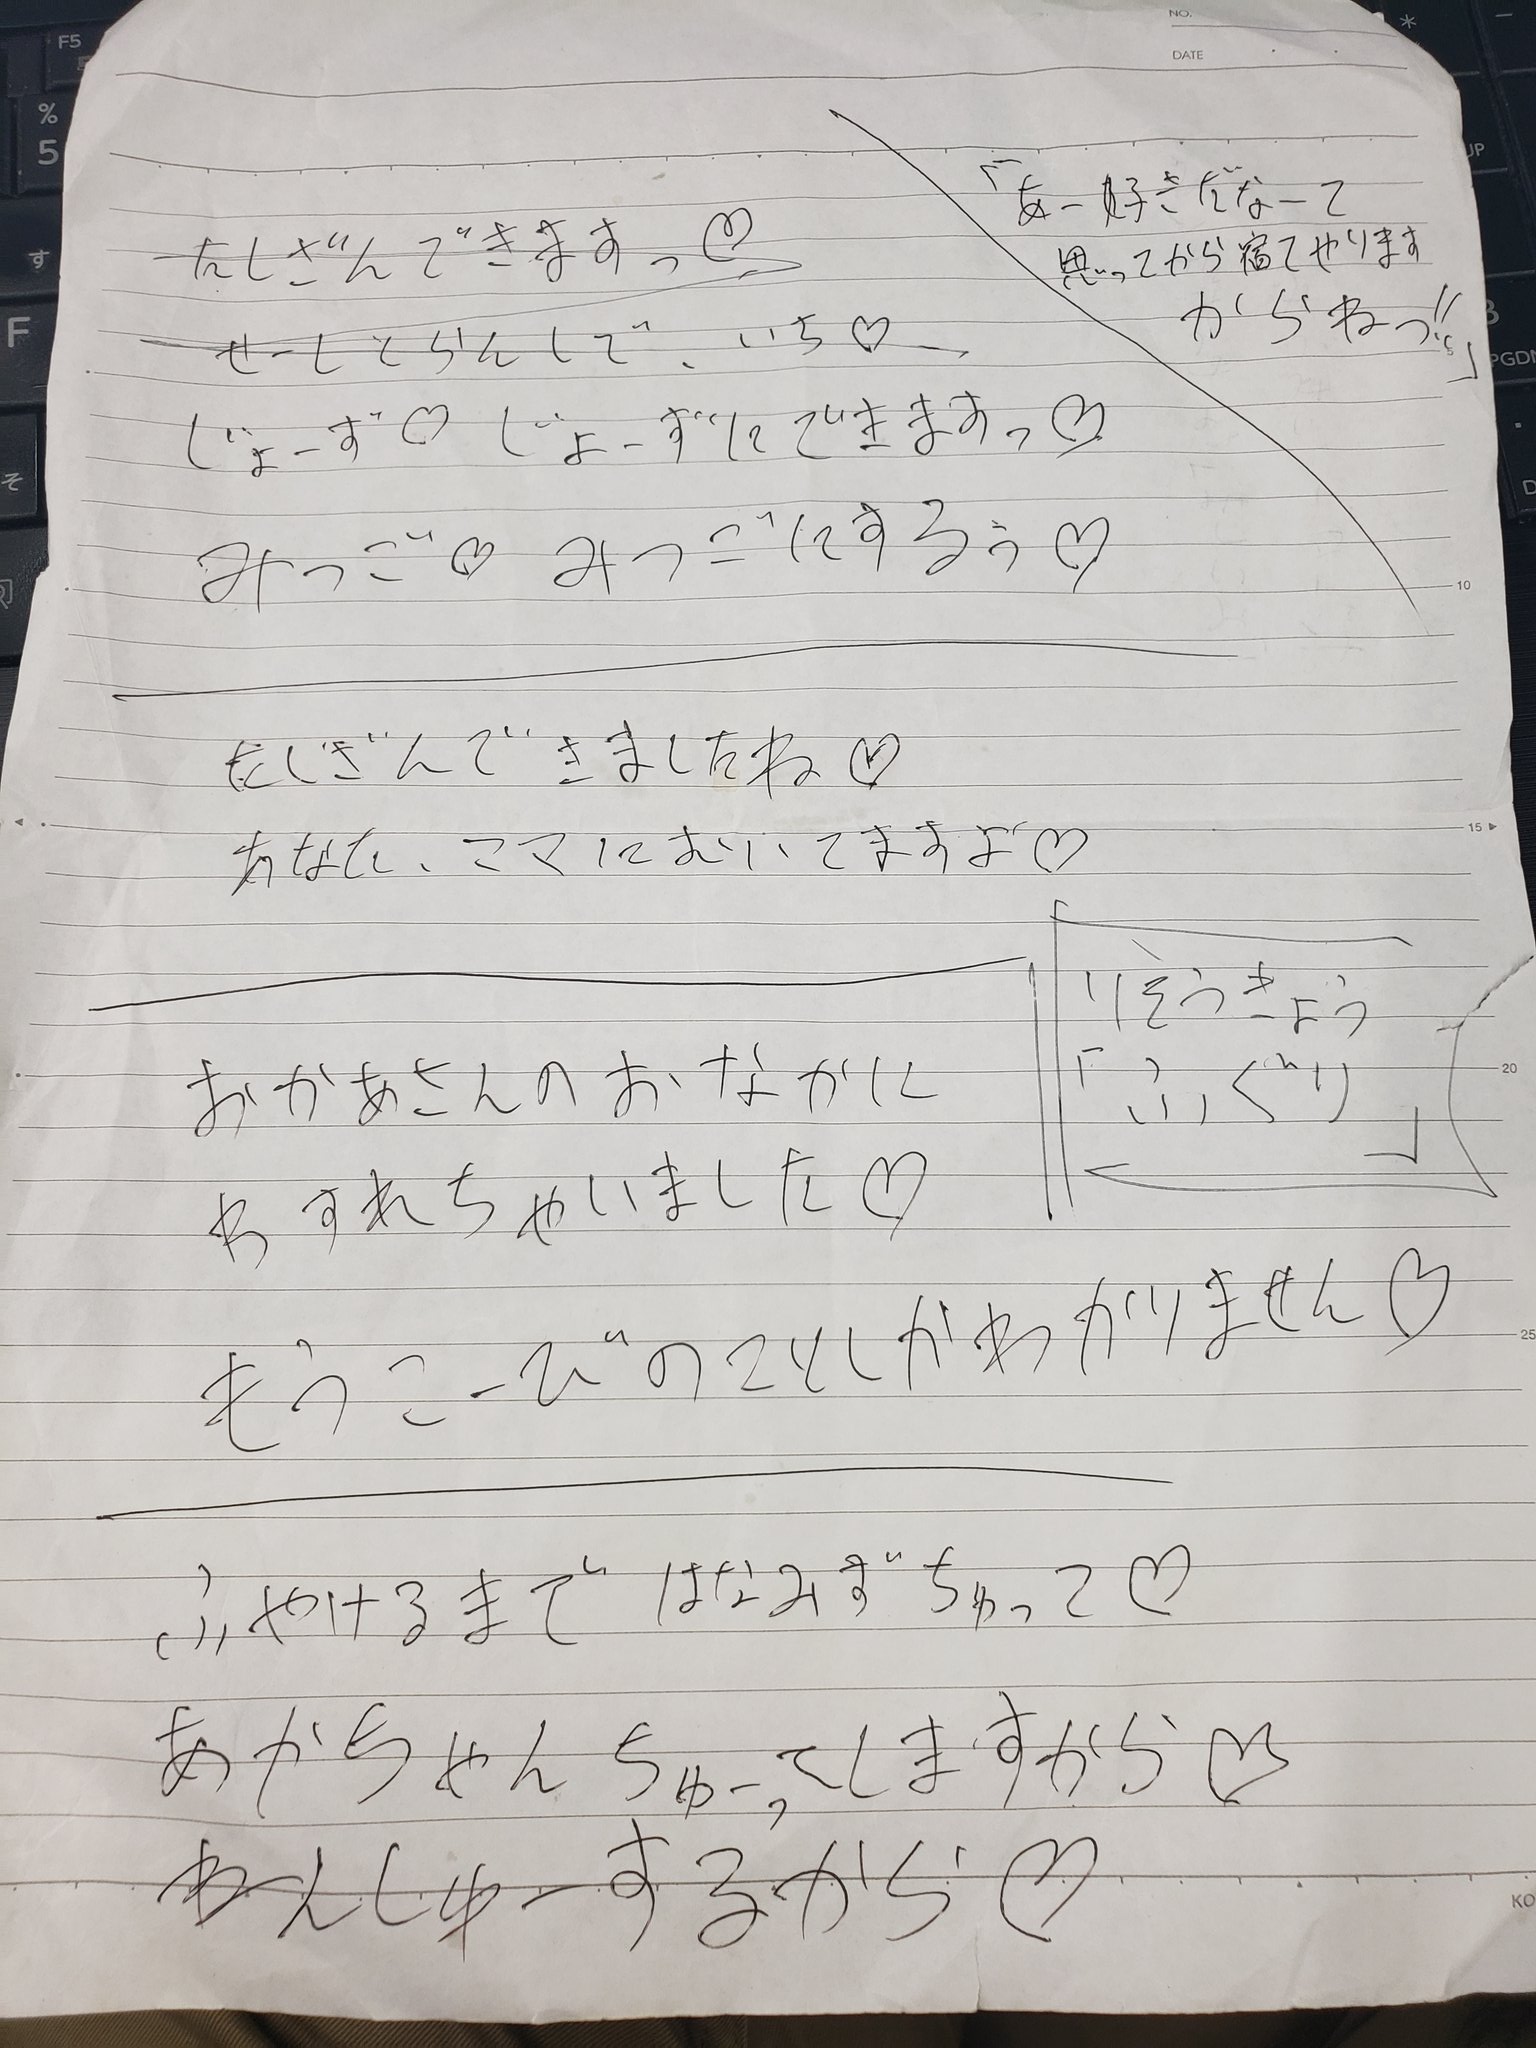 NO.
DATE
「あー好きだなーて
思ってから宿てやります
からねっ!!」
たしざんできますっ♡
せーしとらんしで、いち♡
じょーず♡ じょーずにできますっ♡
みっご♡ みつごにするぅ♡
10
たしざんできましたね♡
あなた、ママにむいてますよ♡
15
りそうきょう
「ふぐり」
おかあさんのおなかに
20
わすれちゃいました♡
もうこーびのことしかわかりません♡
25
ふやけるまで はなみずちゅって♡
あかちゃんちゅーってしますから♡
れんしゅーするから♡
KO
F5
%
5
す
F
そ
*
UP
PGDN